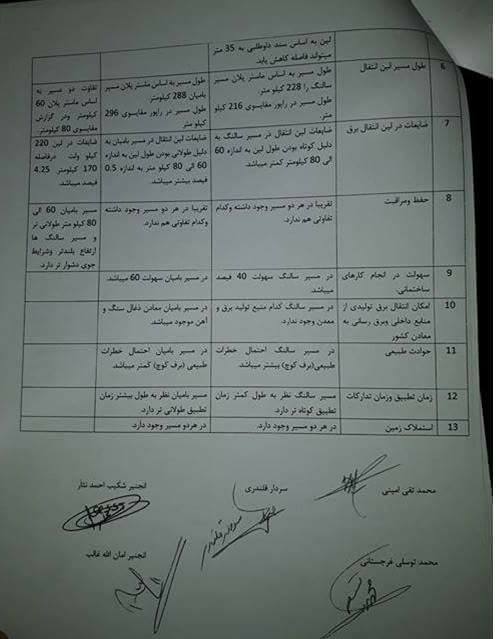 لین به اساس سند داوطلبی به 35 متر
میتواند فاصله کاهش یابد.
6
طول مسیر لین انتقال
طول مسیر به اساس ماستر پلان مسیر
سالنگ را 228 کیلو متر.
طول مسیر در راپور مقایسوی 216 کیلو
متر.
طول مسیر به اساس ماستر پلان مسیر
بامیان 288 کیلومتر.
طول مسیر در راپور مقایسوی 296
کیلو متر
تفاوت دو مسیر به
اساس ماستر پلان 60
کیلومتر ودر گزارش
مقایسوی 80 کیلومتر.
7
ضایعات در لین انتقال برق
ضایعات لین انتقال در مسیر سالنگ به
دلیل کوتاه بودن طول لین به اندازه 60
الی 80 کیلومتر کمتر میباشد.
ضایعات لین انتقال در مسیر بامیان به
دلیل طولانی بودن طول لین به اندازه
60 الی 80 کیلو متر به اندازه 0.5
فیصد بیشتر میباشد.
ضایعات در لین 220
کیلو ولت درفاصله
170 کیلومتر 4.25
فیصد میباشد.
8
حفظ ومراقبت
تقریبا در هر دو مسیر وجود داشته وکدام
تفاوتی هم ندارد.
تقریبا در هر دو مسیر وجود داشته
وکدام تفاوتی هم ندارد.
مسیر بامیان 60 الی
80 کیلو متر طولانی تر
و مسیر سالنگ ها
ارتفاع بلندتر وشرایط
جوی دشوار تر دارد.
9
سهولت در انجام کارهای
ساختمانی.
در مسیر سالنگ سهولت 40 فیصد
میباشد.
در مسیر بامیان سهولت 60 میباشد.
10
امکان انتقال برق تولیدی از
منابع داخلی وبرق رسانی به
معادن کشور
در مسیر سالنگ کدام منبع تولید برق و
معدن وجود ندارد.
در مسیر بامیان معادن ذغال سنگ و
آهن موجود میباشد.
11
حوادث طبیعی
در مسیر سالنگ احتمال خطرات
طبیعی(برف کوچ) بیشتر میباشد.
در مسیر بامیان احتمال خطرات
طبیعی (برف کوچ) کمتر میباشد.
12
زمان تطبیق وزمان تدارکات
مسیر سالنگ نظر به طول کمتر زمان
تطبیق کوتاه تر دارد.
مسیر بامیان نظر به طول بیشتر زمان
تطبیق طولانی تر دارد.
13
استملاک زمین
در هر دو مسیر وجود دارد.
در هردو مسیر وجود دارد.
محمد تقی امینی
سردار قلندری
انجنیر شکیب احمد نثار
محمد توسلی غرجستانی
انجنیر امان الله غالب